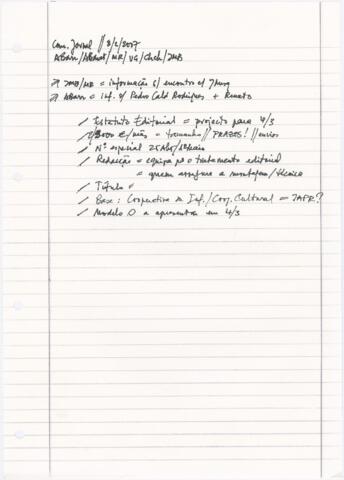 Cons. Jornal // 8/2/2017
ABarr/ABarret/MR/VG/Chch/JMB
→ JMB/MR = informação s/ encontro c/
→ ABarr = inf. s/ Pedro Cald Rodrigues + Renato
/ Estatuto Editorial = projecto para 4/3
/ 3000 €/mês = tamanho // PRAZOS! // envios
/ Nº especial 25 Abr/1º Maio
/ Redacção = equipa p/ o tratamento editorial
= quem assegura a montagem/técnica
/ Título =
/ Base: Cooperativa de Inf./Coop. Cultural = ?
/ Modelo 0 a apresentar em 4/3